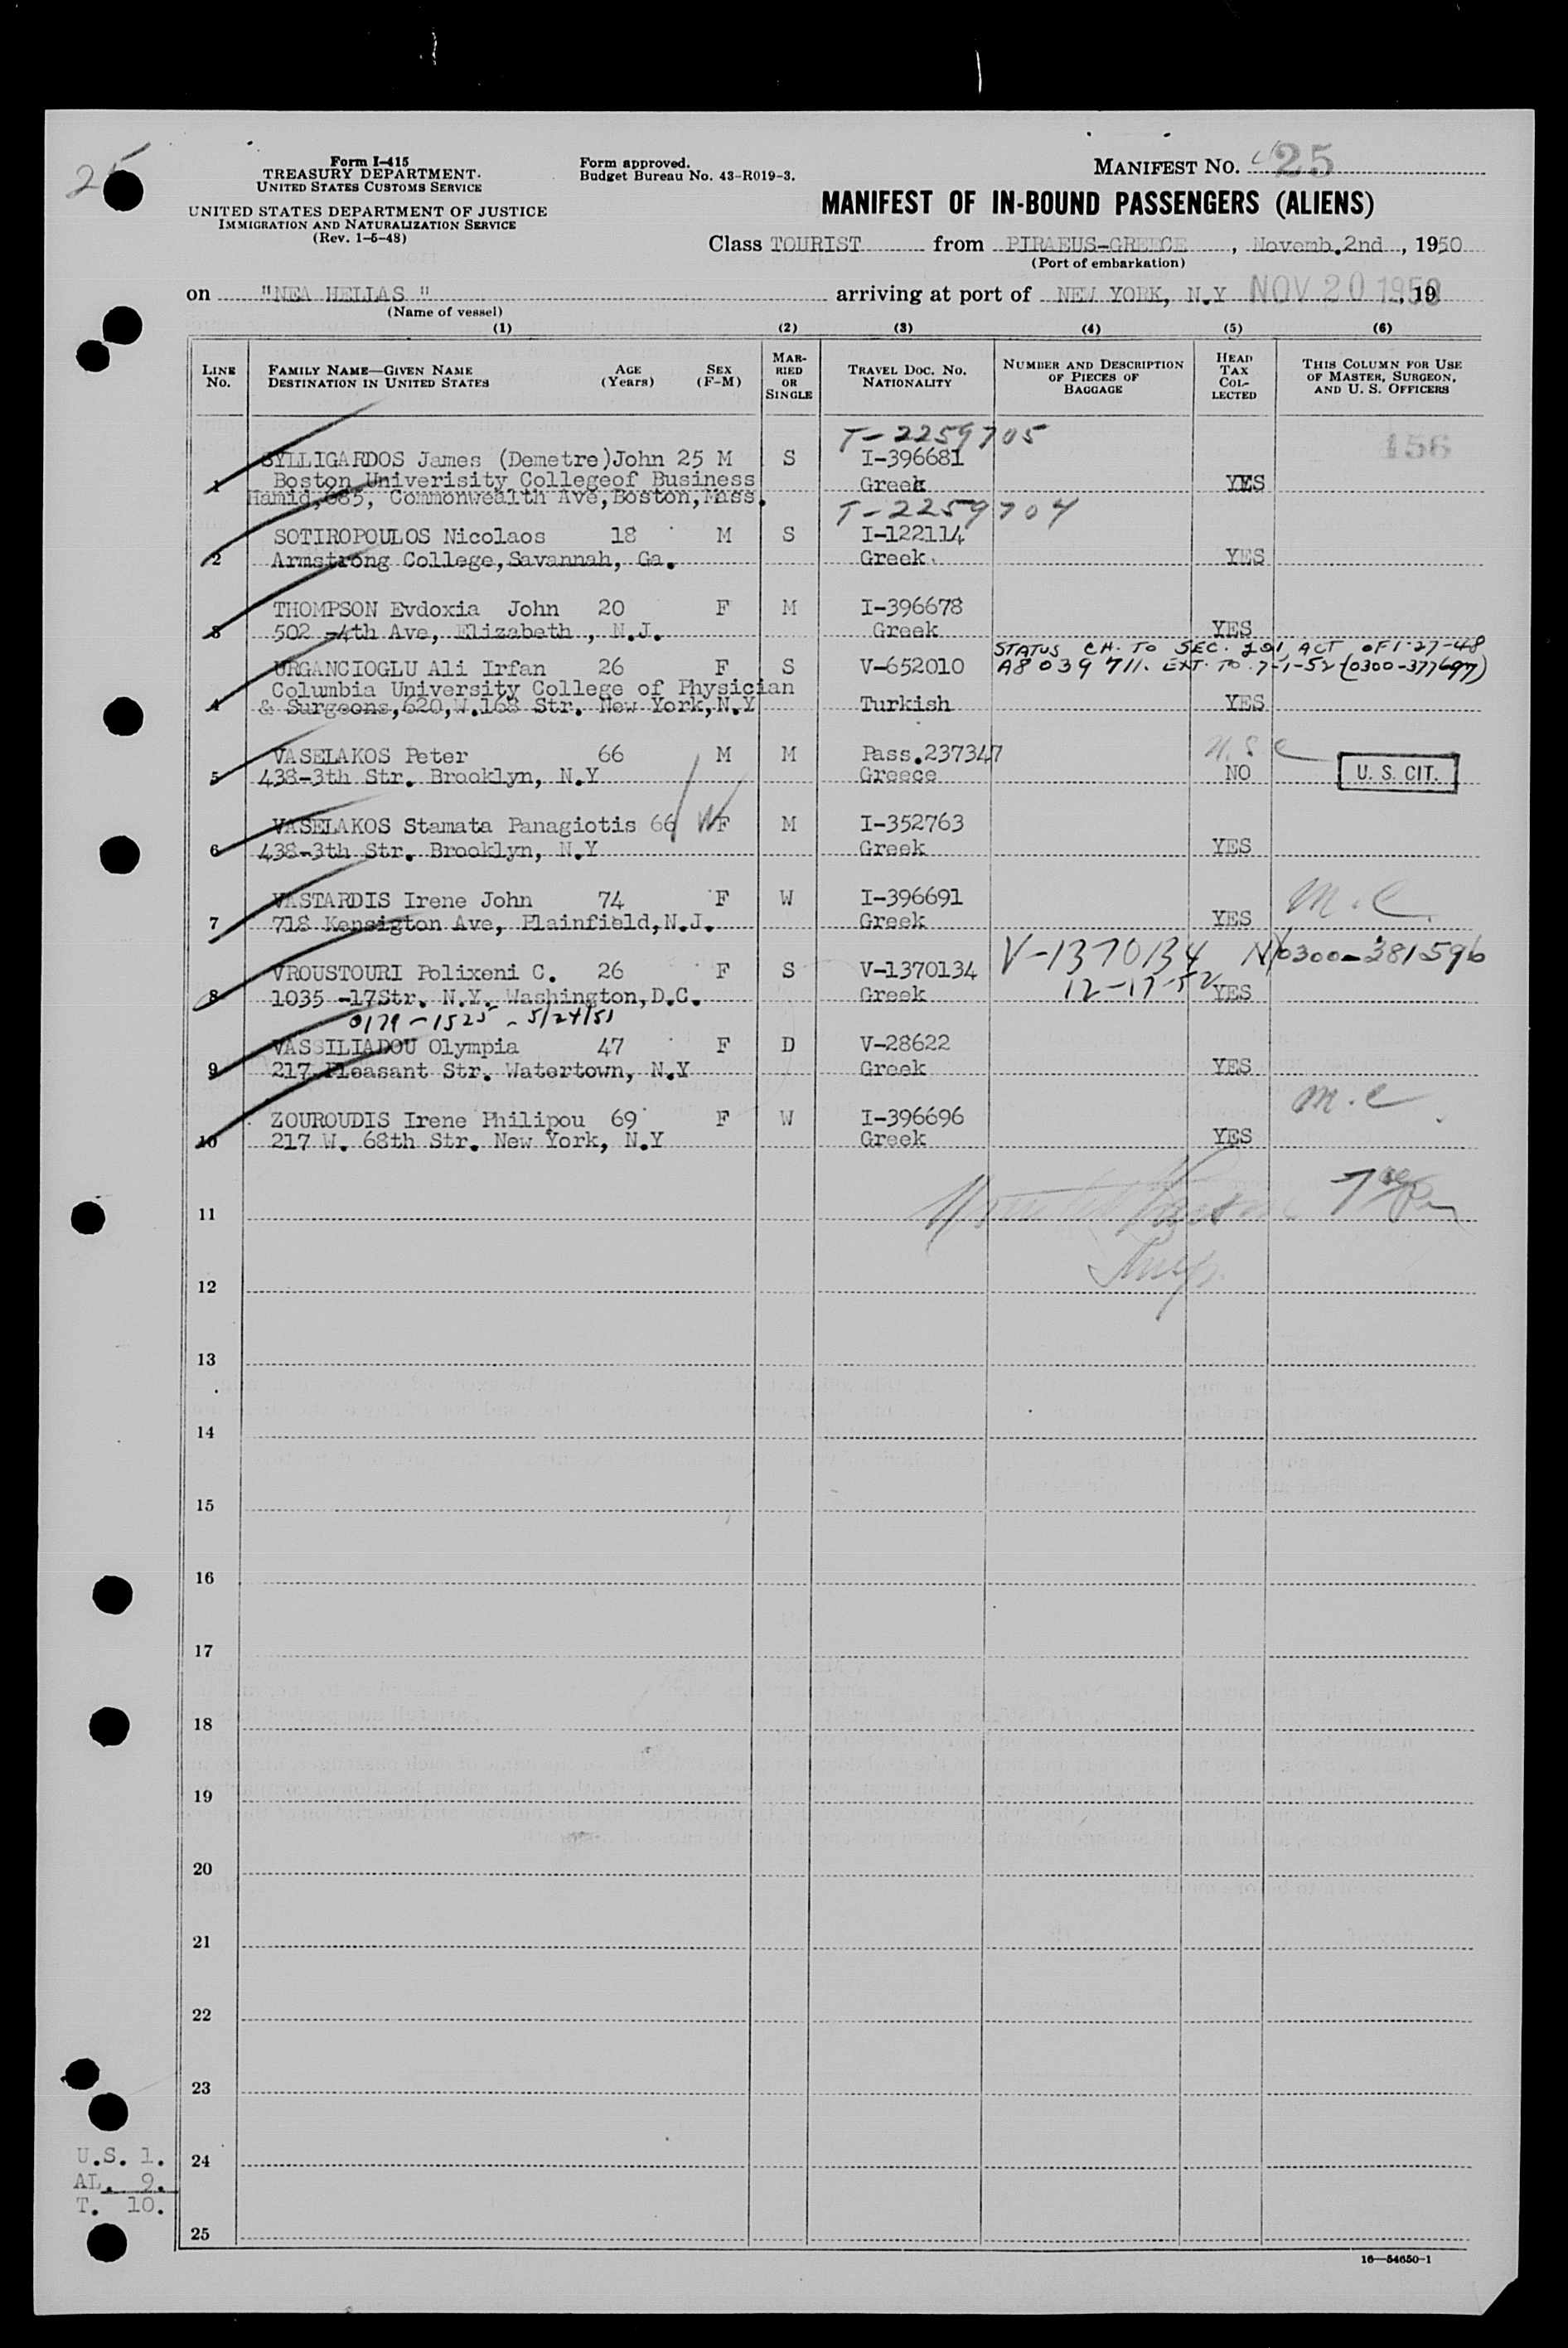 25
Form I-415
TREASURY DEPARTMENT
UNITED STATES CUSTOMS SERVICE
UNITED STATES DEPARTMENT OF JUSTICE
IMMIGRATION AND NATURALIZATION SERVICE
(Rev. 1-5-48)
Form approved.
Budget Bureau No. 43-R019-3.
MANIFEST NO. 25
MANIFEST OF IN-BOUND PASSENGERS (ALIENS)
Class TOURIST from PIRAEUS-GREECE, Novemb.2nd, 1950
(Port of embarkation)
on "NEA HELLAS " arriving at port of NEW YORK, N.Y NOV 20 1950, 19
(Name of vessel)
(1) (2) (3) (4) (5) (6)
LINE No. FAMILY NAME—GIVEN NAME DESTINATION IN UNITED STATES AGE (Years) SEX (F-M) MARRIED OR SINGLE TRAVEL DOC. NO. NATIONALITY NUMBER AND DESCRIPTION OF PIECES OF BAGGAGE HEAD TAX COLLECTED THIS COLUMN FOR USE OF MASTER, SURGEON, AND U. S. OFFICERS
T-2259705 156
SYLLIGARDOS James (Demetre)John 25 M S I-396681
1 Boston Univerisity Collegeof Business Greek YES
Hamid,685, Commonwealth Ave,Boston,Mass.
T-2259704
SOTIROPOULOS Nicolaos 18 M S I-122114
2 Armstrong College,Savannah, Ga. Greek YES
THOMPSON Evdoxia John 20 F M I-396678
3 502 -4th Ave, Elizabeth , N.J. Greek YES
STATUS CH. TO SEC. 201, ACT OF 1-27-48
URGANCIOGLU Ali Irfan 26 F S V-652010 A8 039 711. EXT. TO 7-1-52 (0300-377697)
Columbia University College of Physician
4 & Surgeons,620,W.168 Str. New York,N.Y Turkish YES
VASELAKOS Peter 66 M M Pass.237347 U.S.C
5 438-3th Str. Brooklyn, N.Y Greece NO U. S. CIT.
VASELAKOS Stamata Panagiotis 66 F M I-352763
6 438-3th Str. Brooklyn, N.Y Greek YES
VASTARDIS Irene John 74 F W I-396691 M.C.
7 718 Kensigton Ave, Plainfield,N.J. Greek YES
VROUSTOURI Polixeni C. 26 F S V-1370134 V-1370134 0300-381596
8 1035 -17Str. N.Y. Washington,D.C. Greek 12-17-52 YES
0179-1525 - 5/24/51
VASSILIADOU Olympia 47 F D V-28622
9 217 Pleasant Str. Watertown, N.Y Greek YES
ZOUROUDIS Irene Philipou 69 F W I-396696 M.C.
10 217 W. 68th Str. New York, N.Y Greek YES
11
12 Insp.
13
14
15
16
17
18
19
20
21
22
23
U.S. 1.
24
AL. 9.
T. 10.
25
16—54650-1